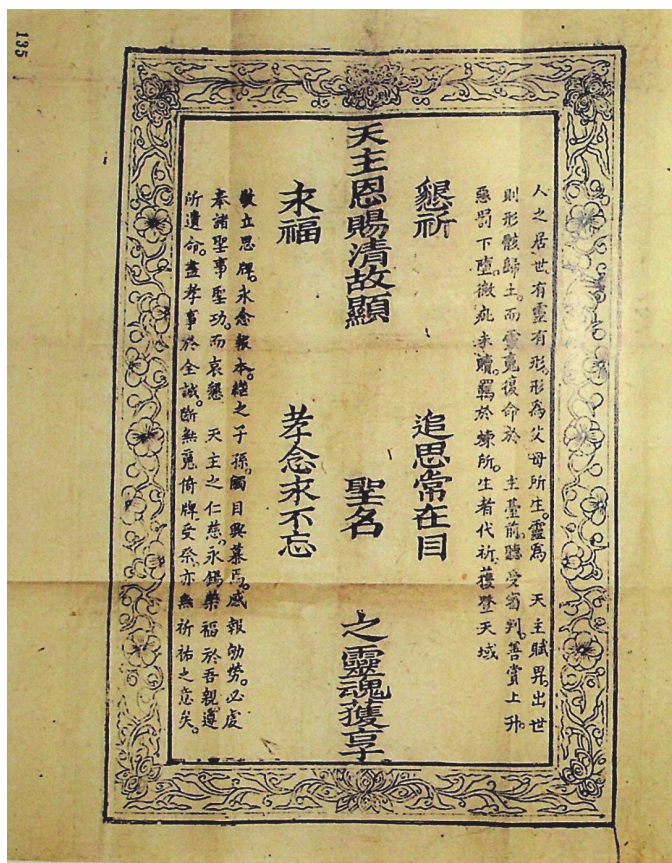 135
人之居世有靈有形。形為父母所生。靈為　天主賦畀。出世
則形骸歸土。而靈䰟復命於　主臺前。聽受審判。善賞上升。
惡罰下墮。微疵未贖。羈於煉所。生者代祈。獲登天域
懇祈　追思常在目
天主恩賜清故顯　聖名　之靈魂獲享
永福　孝念永不忘
敬立思牌。永念報本。継之子孫。觸目興慕焉。感報劬勞。必虔
奉諸聖事聖功。而哀懇　天主之仁慈。永錫榮福於吾親遵
所遺命。盡孝事於全誠。断無䰟倚牌受祭。亦無祈祐之意矣。